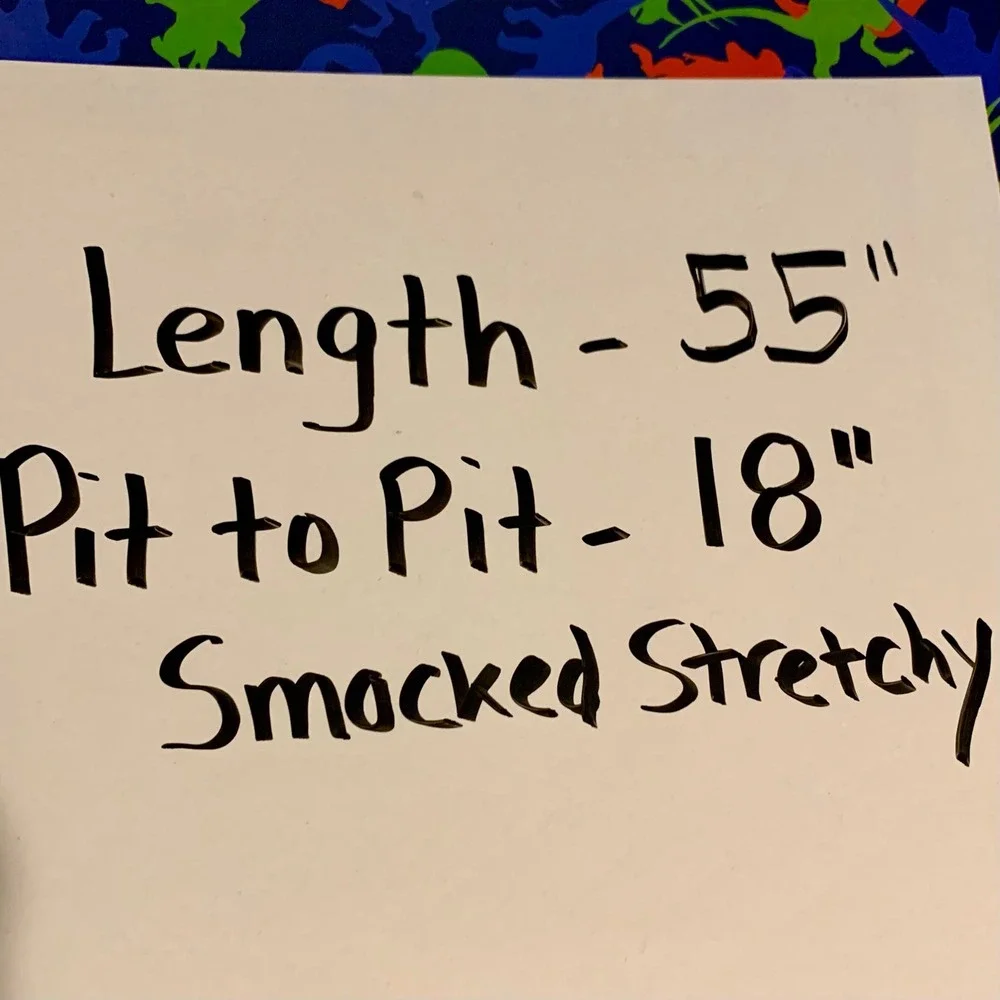 Length - 55"
Pit to Pit - 18"
Smocked Stretchy